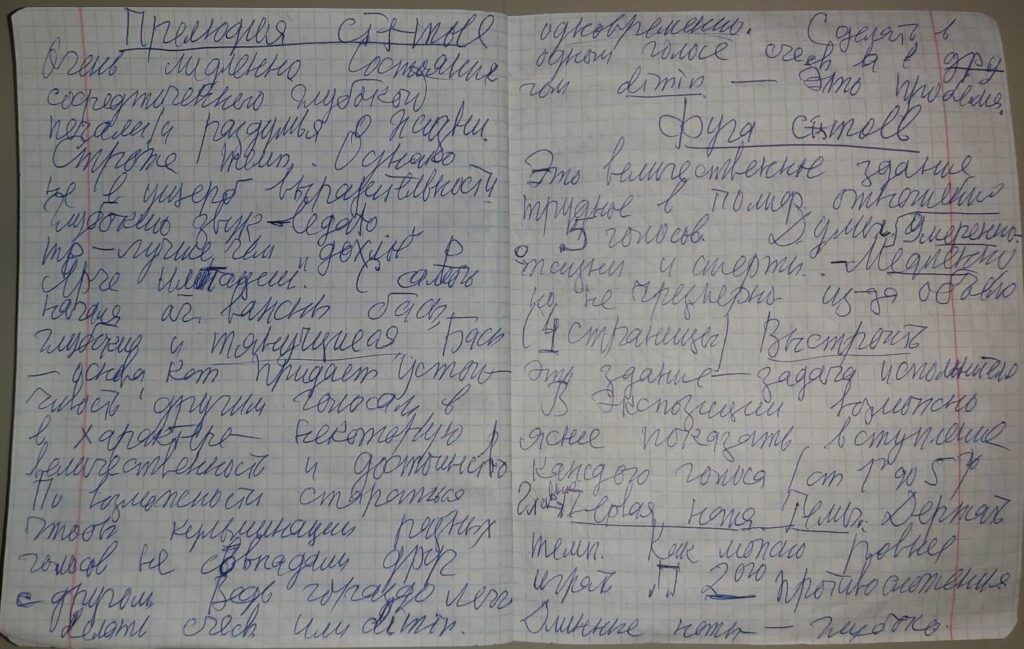 Прелюдия cis moll
Очень медленно Состояние
сосредоточенного глубокой
печали и раздумья о жизни.
Строже темп. Однако
не в ущерб выразительности
Глубокий звук
лучше, чем "дохлый" p
Ярче имитации. (с самого
начала Очень важны басы
глубокий и тянущиеся. Басы
— основа кот придает устой-
чивость другим голосам, в
в характере некоторую
величественность и достоинство
По возможности стараться
чтобы кульминации разных
голосов не совпадали друг
с другом. Ведь гораздо легче
делать cresc. или dimin.
одновременно. Сделать в
одном голосе cresc, а в дру
гом dimin — Это проблема.
Фуга cis moll
Это величественное здание
трудное в полиф. отношении
5 голосов. Думы Умеренно-
о жизни и смерти. – Медленно
но не чрезмерно из-за объёма
(4 страницы) Выстроить
это здание — задача исполнителя
В Экспозиции возможно
яснее показать вступление
каждого голоса (от 1го до 5го)
Главное Первая нота Темы. Держать
темп. Как можно ровнее
играть 2ого противосложения
Длинные ноты — глубоко.